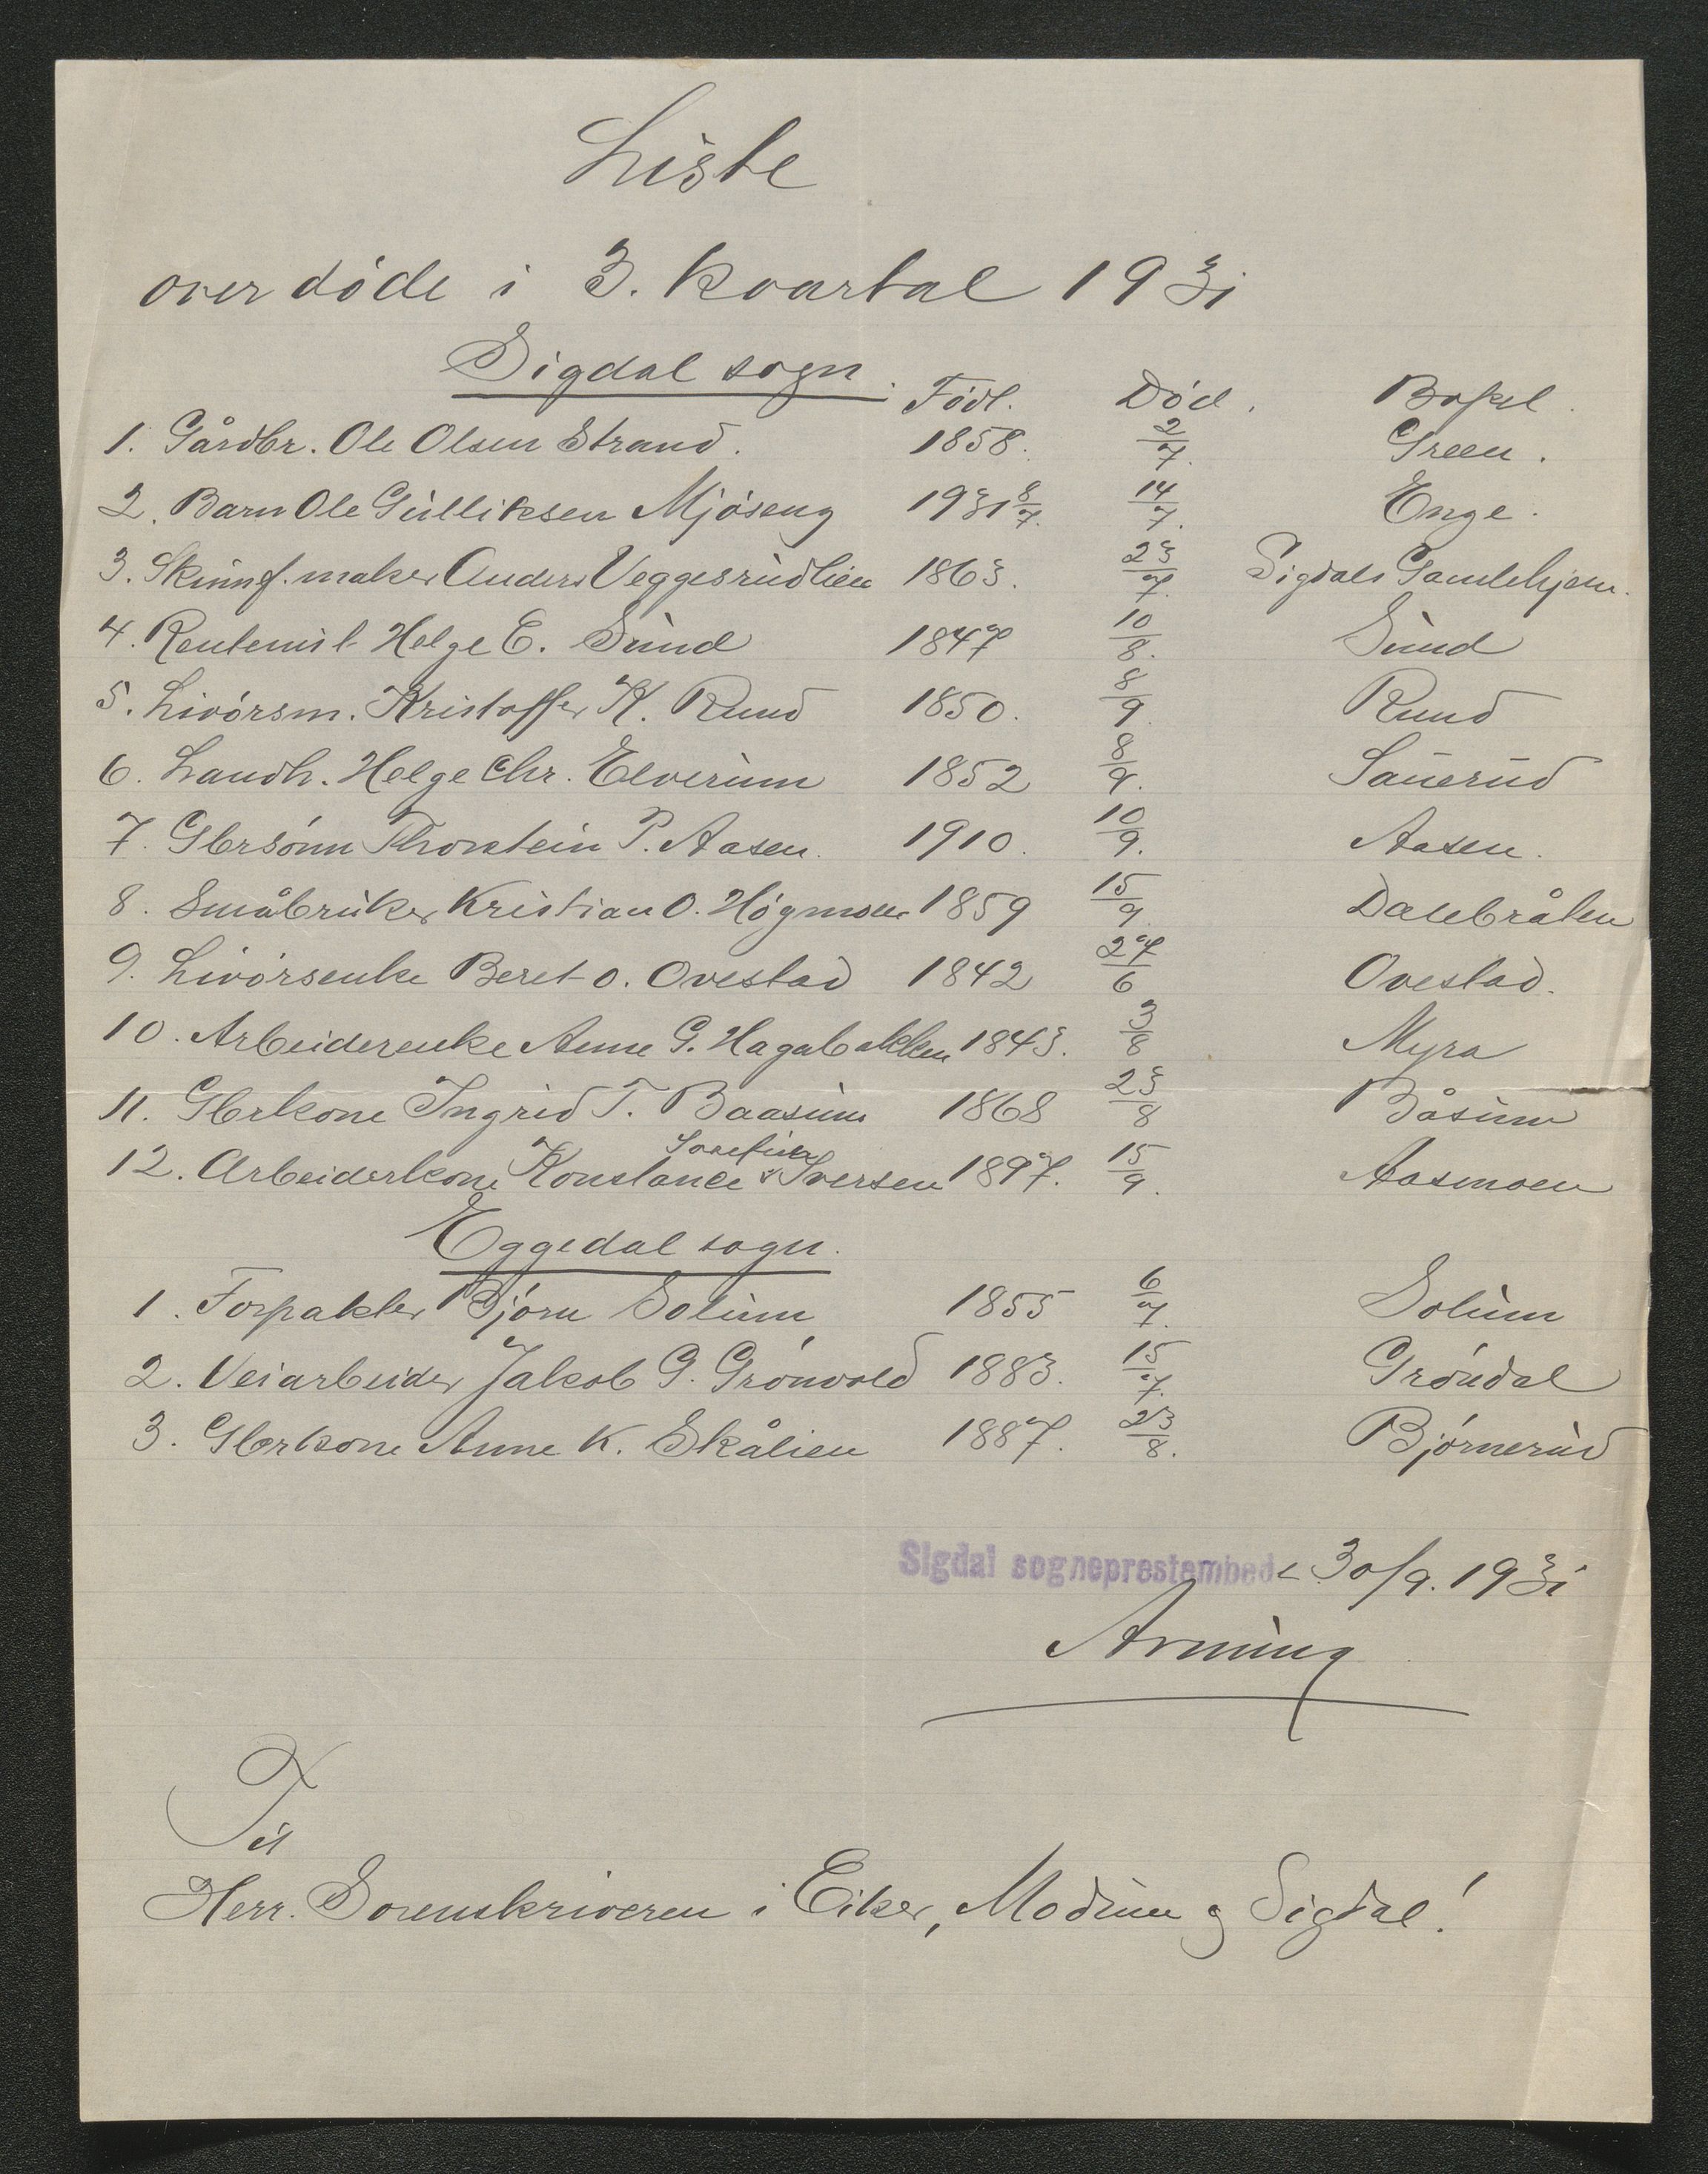 Liste
over døde i 3. kvartal 1931
Sigdal sogn. Født. Død. Bopel.
1. Gårdbr. Ole Olsen Strand. 1858. 2/7. Green.
2. Barn Ole Gulliksen Mjøseng 1931 8/7. 14/7. Enge.
3. Skinnf. maker Anders Veggesrudlien 1863. 23/7. Sigdals Gamlehjem.
4. Rentenist Helge E. Sund 1847 10/8. Sund
5. Livørsm. Kristoffer K. Ruud 1850. 8/9. Ruud
6. Landh. Helge Chr. Elverum 1852 8/9. Sauerud
7. Gbrsønn Thorstein P. Aasen. 1910. 10/9. Aasen.
8. Småbruker Kristian O. Høgmoen 1859 15/9. Dalebråten
9. Livørsenke Beret O. Ovestad 1842 27/6 Ovestad.
10. Arbeiderenke Anne G. Hagabakken 1843. 3/8 Myra
11. Gbrkone Ingrid T. Baasum 1868 23/8 Båsum
Josefine
12. Arbeiderkone Konstance Iversen 1897. 15/9. Aasmoen
Eggedal sogn.
1. Forpakter Bjørn Solum 1855 6/7. Solum
2. Veiarbeider Jakob G. Grønvold 1883. 15/7. Grøndal
3. Gbrkone Anne K. Skålien 1887. 23/8. Bjørnerud
Sigdal sogneprestembede 30/9. 1931
Til
Herr. Sorenskriveren i Eiker, Modum og Sigdal!